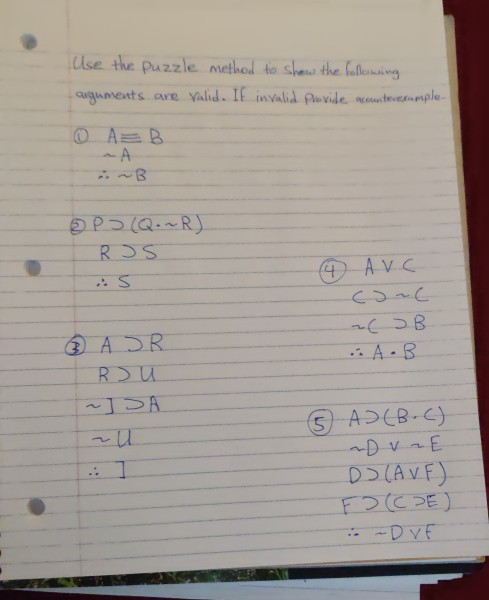 Use the puzzle method to show the following
arguments are valid. If invalid provide acounterexample.
① A≡B
~A
∴ ~B
② P⊃(Q·~R)
R⊃S
∴ S
③ A⊃R
R⊃U
~J⊃A
~U
∴ J
④ A∨C
C⊃~C
~C⊃B
∴ A·B
⑤ A⊃(B·C)
~D∨~E
D⊃(A∨F)
F⊃(C⊃E)
∴ ~D∨F